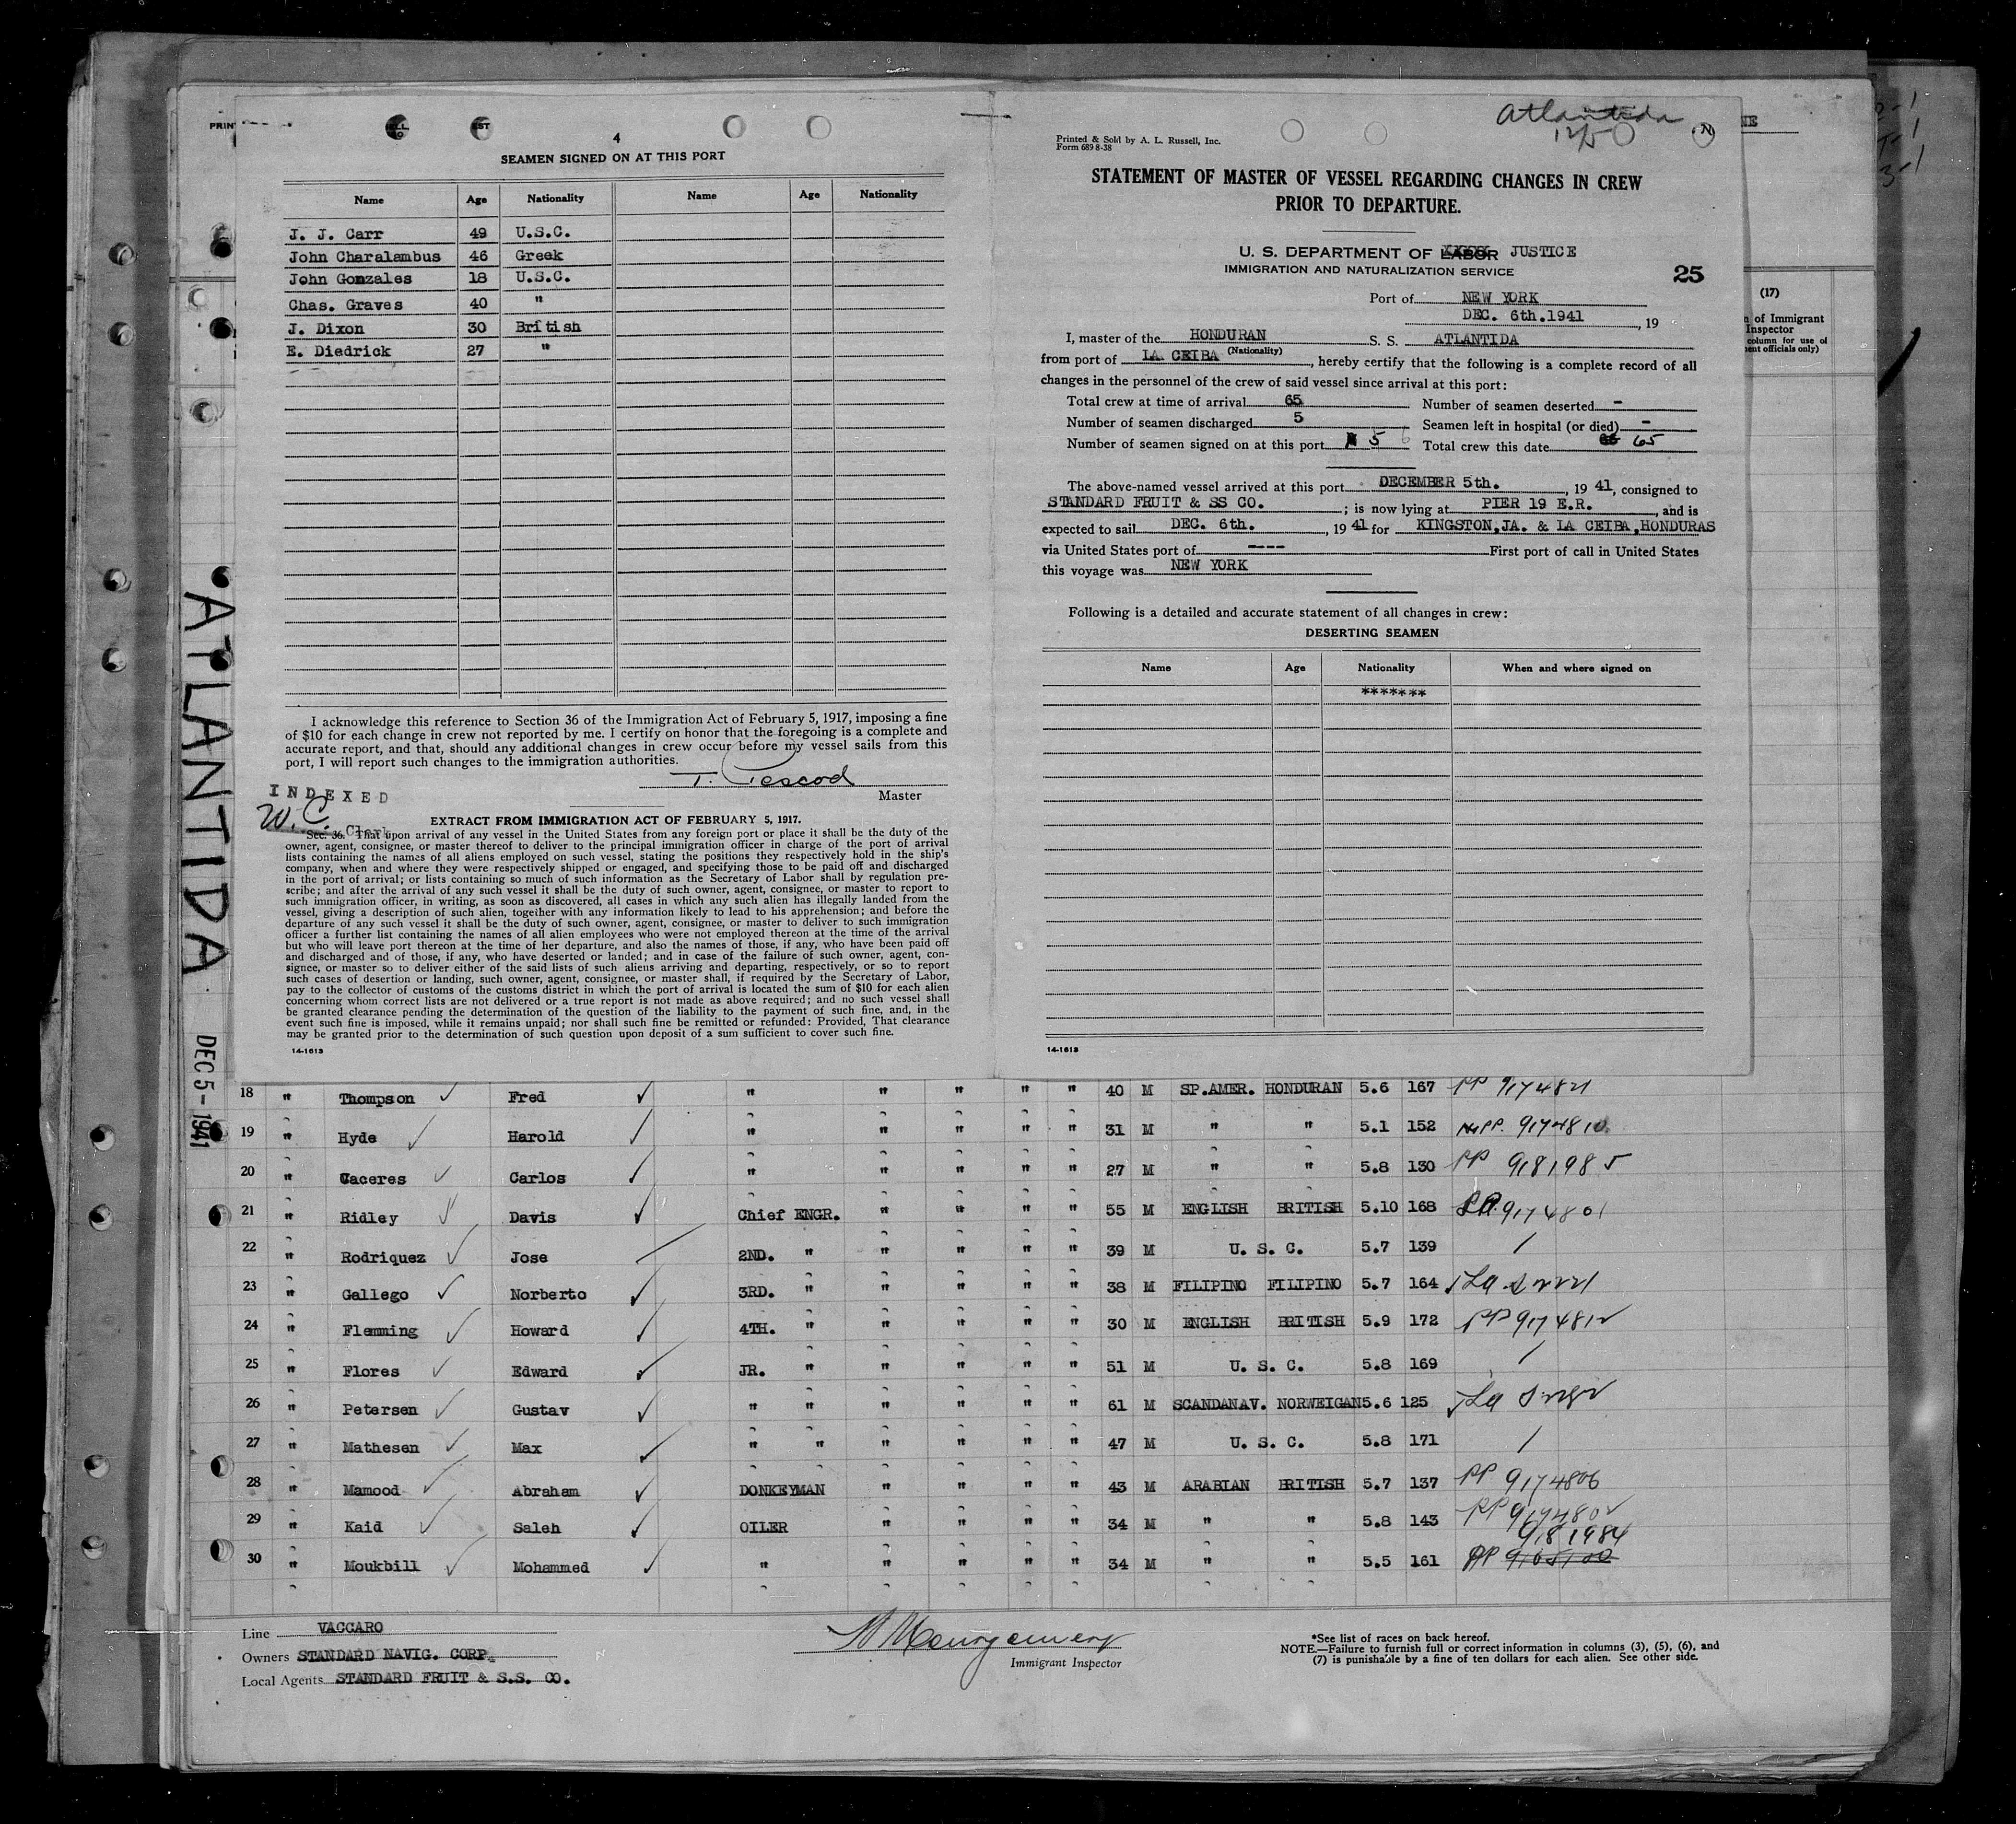 4
SEAMEN SIGNED ON AT THIS PORT
Name Age Nationality Name Age Nationality
J. J. Carr 49 U.S.C.
John Charalambus 46 Greek
John Gonzales 18 U.S.C.
Chas. Graves 40 "
J. Dixon 30 British
E. Diedrick 27 "
I acknowledge this reference to Section 36 of the Immigration Act of February 5, 1917, imposing a fine
of $10 for each change in crew not reported by me. I certify on honor that the foregoing is a complete and
accurate report, and that, should any additional changes in crew occur before my vessel sails from this
port, I will report such changes to the immigration authorities.
T. Pescod
Master
INDEXED
W. C.
Clerk
EXTRACT FROM IMMIGRATION ACT OF FEBRUARY 5, 1917.
Sec. 36. That upon arrival of any vessel in the United States from any foreign port or place it shall be the duty of the
owner, agent, consignee, or master thereof to deliver to the principal immigration officer in charge of the port of arrival
lists containing the names of all aliens employed on such vessel, stating the positions they respectively hold in the ship's
company, when and where they were respectively shipped or engaged, and specifying those to be paid off and discharged
in the port of arrival; or lists containing so much of such information as the Secretary of Labor shall by regulation pre-
scribe; and after the arrival of any such vessel it shall be the duty of such owner, agent, consignee, or master to report to
such immigration officer, in writing, as soon as discovered, all cases in which any such alien has illegally landed from the
vessel, giving a description of such alien, together with any information likely to lead to his apprehension; and before the
departure of any such vessel it shall be the duty of such owner, agent, consignee, or master to deliver to such immigration
officer a further list containing the names of all alien employees who were not employed thereon at the time of the arrival
but who will leave port thereon at the time of her departure, and also the names of those, if any, who have been paid off
and discharged and of those, if any, who have deserted or landed; and in case of the failure of such owner, agent, con-
signee, or master so to deliver either of the said lists of such aliens arriving and departing, respectively, or so to report
such cases of desertion or landing, such owner, agent, consignee, or master shall, if required by the Secretary of Labor,
pay to the collector of customs of the customs district in which the port of arrival is located the sum of $10 for each alien
concerning whom correct lists are not delivered or a true report is not made as above required; and no such vessel shall
be granted clearance pending the determination of the question of the liability to the payment of such fine, and, in the
event such fine is imposed, while it remains unpaid; nor shall such fine be remitted or refunded: Provided, That clearance
may be granted prior to the determination of such question upon deposit of a sum sufficient to cover such fine.
14-1613
Atlantida
12/5
Printed & Sold by A. L. Russell, Inc.
Form 689 8-38
STATEMENT OF MASTER OF VESSEL REGARDING CHANGES IN CREW
PRIOR TO DEPARTURE.
U. S. DEPARTMENT OF LABOR JUSTICE
IMMIGRATION AND NATURALIZATION SERVICE
25
Port of NEW YORK
DEC. 6th.1941, 19
I, master of the HONDURAN S. S. ATLANTIDA
(Nationality)
from port of LA CEIBA, hereby certify that the following is a complete record of all
changes in the personnel of the crew of said vessel since arrival at this port:
Total crew at time of arrival 65 Number of seamen deserted -
Number of seamen discharged 5 Seamen left in hospital (or died) -
Number of seamen signed on at this port 5 6 Total crew this date 65
The above-named vessel arrived at this port DECEMBER 5th., 1941, consigned to
STANDARD FRUIT & SS CO.; is now lying at PIER 19 E.R., and is
expected to sail DEC. 6th., 1941 for KINGSTON,JA. & LA CEIBA,HONDURAS
via United States port of ---- First port of call in United States
this voyage was NEW YORK
Following is a detailed and accurate statement of all changes in crew:
DESERTING SEAMEN
Name Age Nationality When and where signed on
*******
14-1613
(17)
of Immigrant
Inspector
column for use of
officials only)
ATLANTIDA
DEC 5- 1941
18 " Thompson Fred " " " " " 40 M SP.AMER. HONDURAN 5.6 167 PP 9174821
19 " Hyde Harold " " " " " 31 M " " 5.1 152 PP. 9174810
20 " Caceres Carlos " " " " " 27 M " " 5.8 130 PP 9181985
21 " Ridley Davis Chief ENGR. " " " " 55 M ENGLISH BRITISH 5.10 168 PP 9174801
22 " Rodriquez Jose 2ND. " " " " " 39 M U. S. C. 5.7 139
23 " Gallego Norberto 3RD. " " " " " 38 M FILIPINO FILIPINO 5.7 164
24 " Flemming Howard 4TH. " " " " " 30 M ENGLISH BRITISH 5.9 172 PP 9174812
25 " Flores Edward JR. " " " " " 51 M U. S. C. 5.8 169
26 " Petersen Gustav " " " " " " 61 M SCANDANAV. NORWEIGAN 5.6 125
27 " Mathesen Max " " " " " " 47 M U. S. C. 5.8 171
28 " Mamood Abraham DONKEYMAN " " " " 43 M ARABIAN BRITISH 5.7 137 PP 9174806
29 " Kaid Saleh OILER " " " " 34 M " " 5.8 143 PP 9174802
9181984
30 " Moukbill Mohammed " " " " " 34 M " " 5.5 161 PP
Line VACCARO
Owners STANDARD NAVIG. CORP.
Local Agents STANDARD FRUIT & S.S. CO.
Immigrant Inspector
*See list of races on back hereof.
NOTE.—Failure to furnish full or correct information in columns (3), (5), (6), and
(7) is punishable by a fine of ten dollars for each alien. See other side.